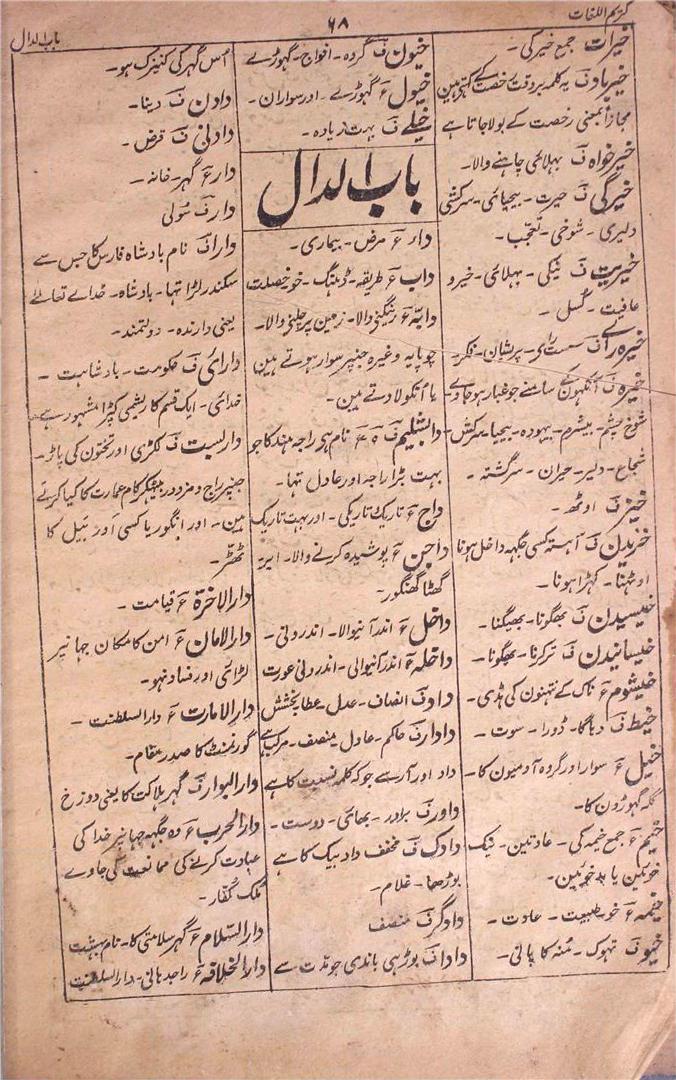 کریم اللغات
۶۸
باب الدال
خیرات جمع خیر کی -
خیرباد ف یہ کلمہ بروقت رخصت کے کہتے ہین
مجازاً بمعنی رخصت کے بولا جاتا ہے
خیرخواہ ف بہلائی چاہنے والا -
خیرگی ف حیرت - بیحیائی - سرکشی
دلیری - شوخی - تعجب -
خیریت ف نیکی - بہلائی - خیر و
عافیت - کسل -
خیرہ رائے ف سست رای - پریشان - فکر -
خیرہ ف آنکہون کے سامنے جو غبار ہو جاوے
شوخ چشم - بیشرم - بیہودہ - بیحیا - سرکش -
شجاع - دلیر - حیران - سرگشتہ -
خیز ف اوٹھ -
خزیدن ف آہستہ کسی جگہہ داخل ہونا
اوٹہنا - کہڑا ہونا -
خیسیدن ف بھگونا - بھیگنا -
خیسانیدن ف تر کرنا - بھگونا -
خیشوم ع ناک کے نتہنون کی ہڈی -
خیط ف دہاگا - ڈورا - سوت -
خیل ع سوار اور گروہ آدمیون کا -
گلہ گہوڑون کا -
خیم ع جمع خیمہ کی - عادتین - نیک
خوئین یا بد خوئین -
خیمہ ع خو - طبیعت - عادت -
خیو ف تہوک - منہ کا پانی -
خیول ف گروہ - افواج - گہوڑے
خیول ع گہوڑے - اور سواران -
خیلے ف بہت زیادہ -
باب الدال
دار ع مرض - بیماری -
داب ع طریقہ - ڈہنگ - خو خصلت
دابّہ ع رینگنے والا - زمین پر چلنے والا -
چوپایہ وغیرہ جنپر سوار ہوتے ہین
یا اُنکو لادتے ہین -
دابشلیم ف ہ ع نام ہی راجہ ہند کا جو
بہت بڑا راجہ اور عادل تہا -
داج ع تاریک تاریکی - اور بہت تاریک
داجن ع پوشیدہ کرنے والا - ابر
گھٹا گھنگور -
داخل ع اندر آنیوالا - اندرونی -
داخلہ ع اندر آنیوالی - اندرونی عورت
داد ف انصاف - عدل - عطا بخشش
دادار ف حاکم - عادل منصف - مرکب ہے
داد اور آر سے جو کہ کلمہ نسبت کا ہے
داور ف برادر - بھائی - دوست -
دادک ف مخفف داد بیک کا ہے
بوڑھا - غلام -
دادگر ف منصف
دادا ف بوڑہی باندی جو مدت سے
اُس گہر کی کنیزک ہو -
دادن ف دینا -
دادنی ف قرض -
دار ع گہر - خانہ -
دار ف سُولی
دارا ف نام بادشاہ فارس کا جس سے
سکندر لڑا تہا - بادشاہ - خداے تعالے
یعنی دارندہ - دولتمند -
دارائی ف حکومت - بادشاہت -
خدائی - ایک قسم کا ریشمی کپڑا مشہور ہے
داربست ف لکڑی اور تختون کی پاڑ -
جنپر راج و مزدور بیٹھکر کام عمارت کا کیا کرتے
ہین - اور انگور یا کسی اور بیل کا
ٹھٹر -
دار الاخرۃ ع قیامت -
دار الامان ع امن کا مکان جہانپر
لڑائی اور فساد نہو -
دار الامارت ع دار السلطنت -
گورنمنٹ کا صدر مقام -
دار البوار ف گہر ہلاکت کا یعنی دوزخ
دار الحرب ع وہ جگہہ جہانپر خدا کی
عبادت کرنے کی ممانعت کی جاوے
ملک کفار -
دار السلام ع گہر سلامتی کا - نام بہشت
دار الخلافہ ع راجدہانی - دار السلطنت